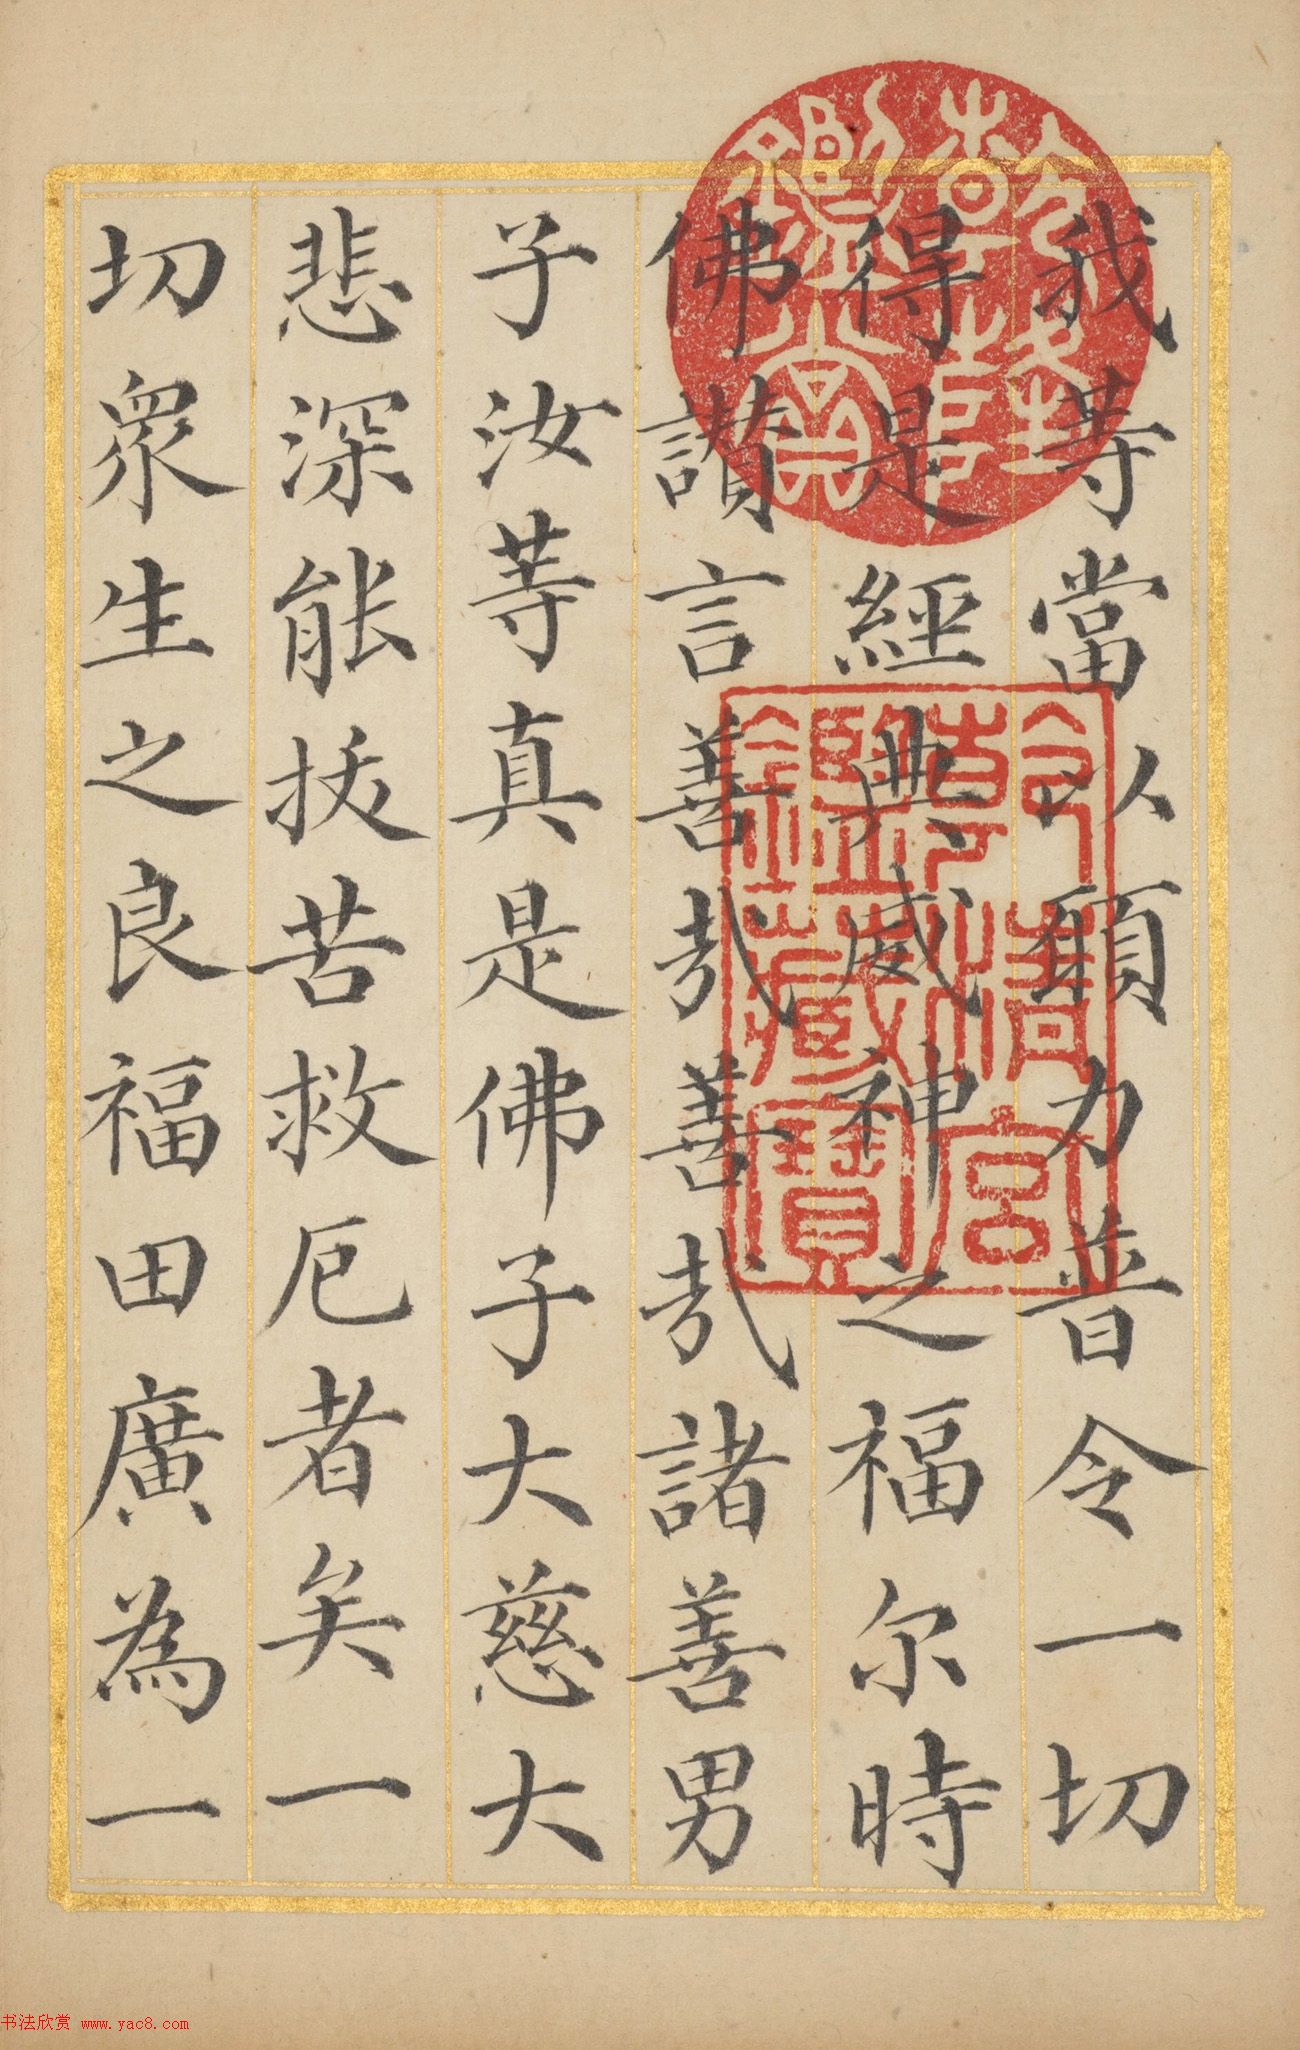 我等當以願力普令一切
得是經典威神之福尔時
佛讚言善哉善哉諸善男
子汝等真是佛子大慈大
悲深能拔苦救厄者矣一
切眾生之良福田廣為一
乾隆鑑賞
乾清宮鑑藏寶
书法欣赏 www.yac8.com